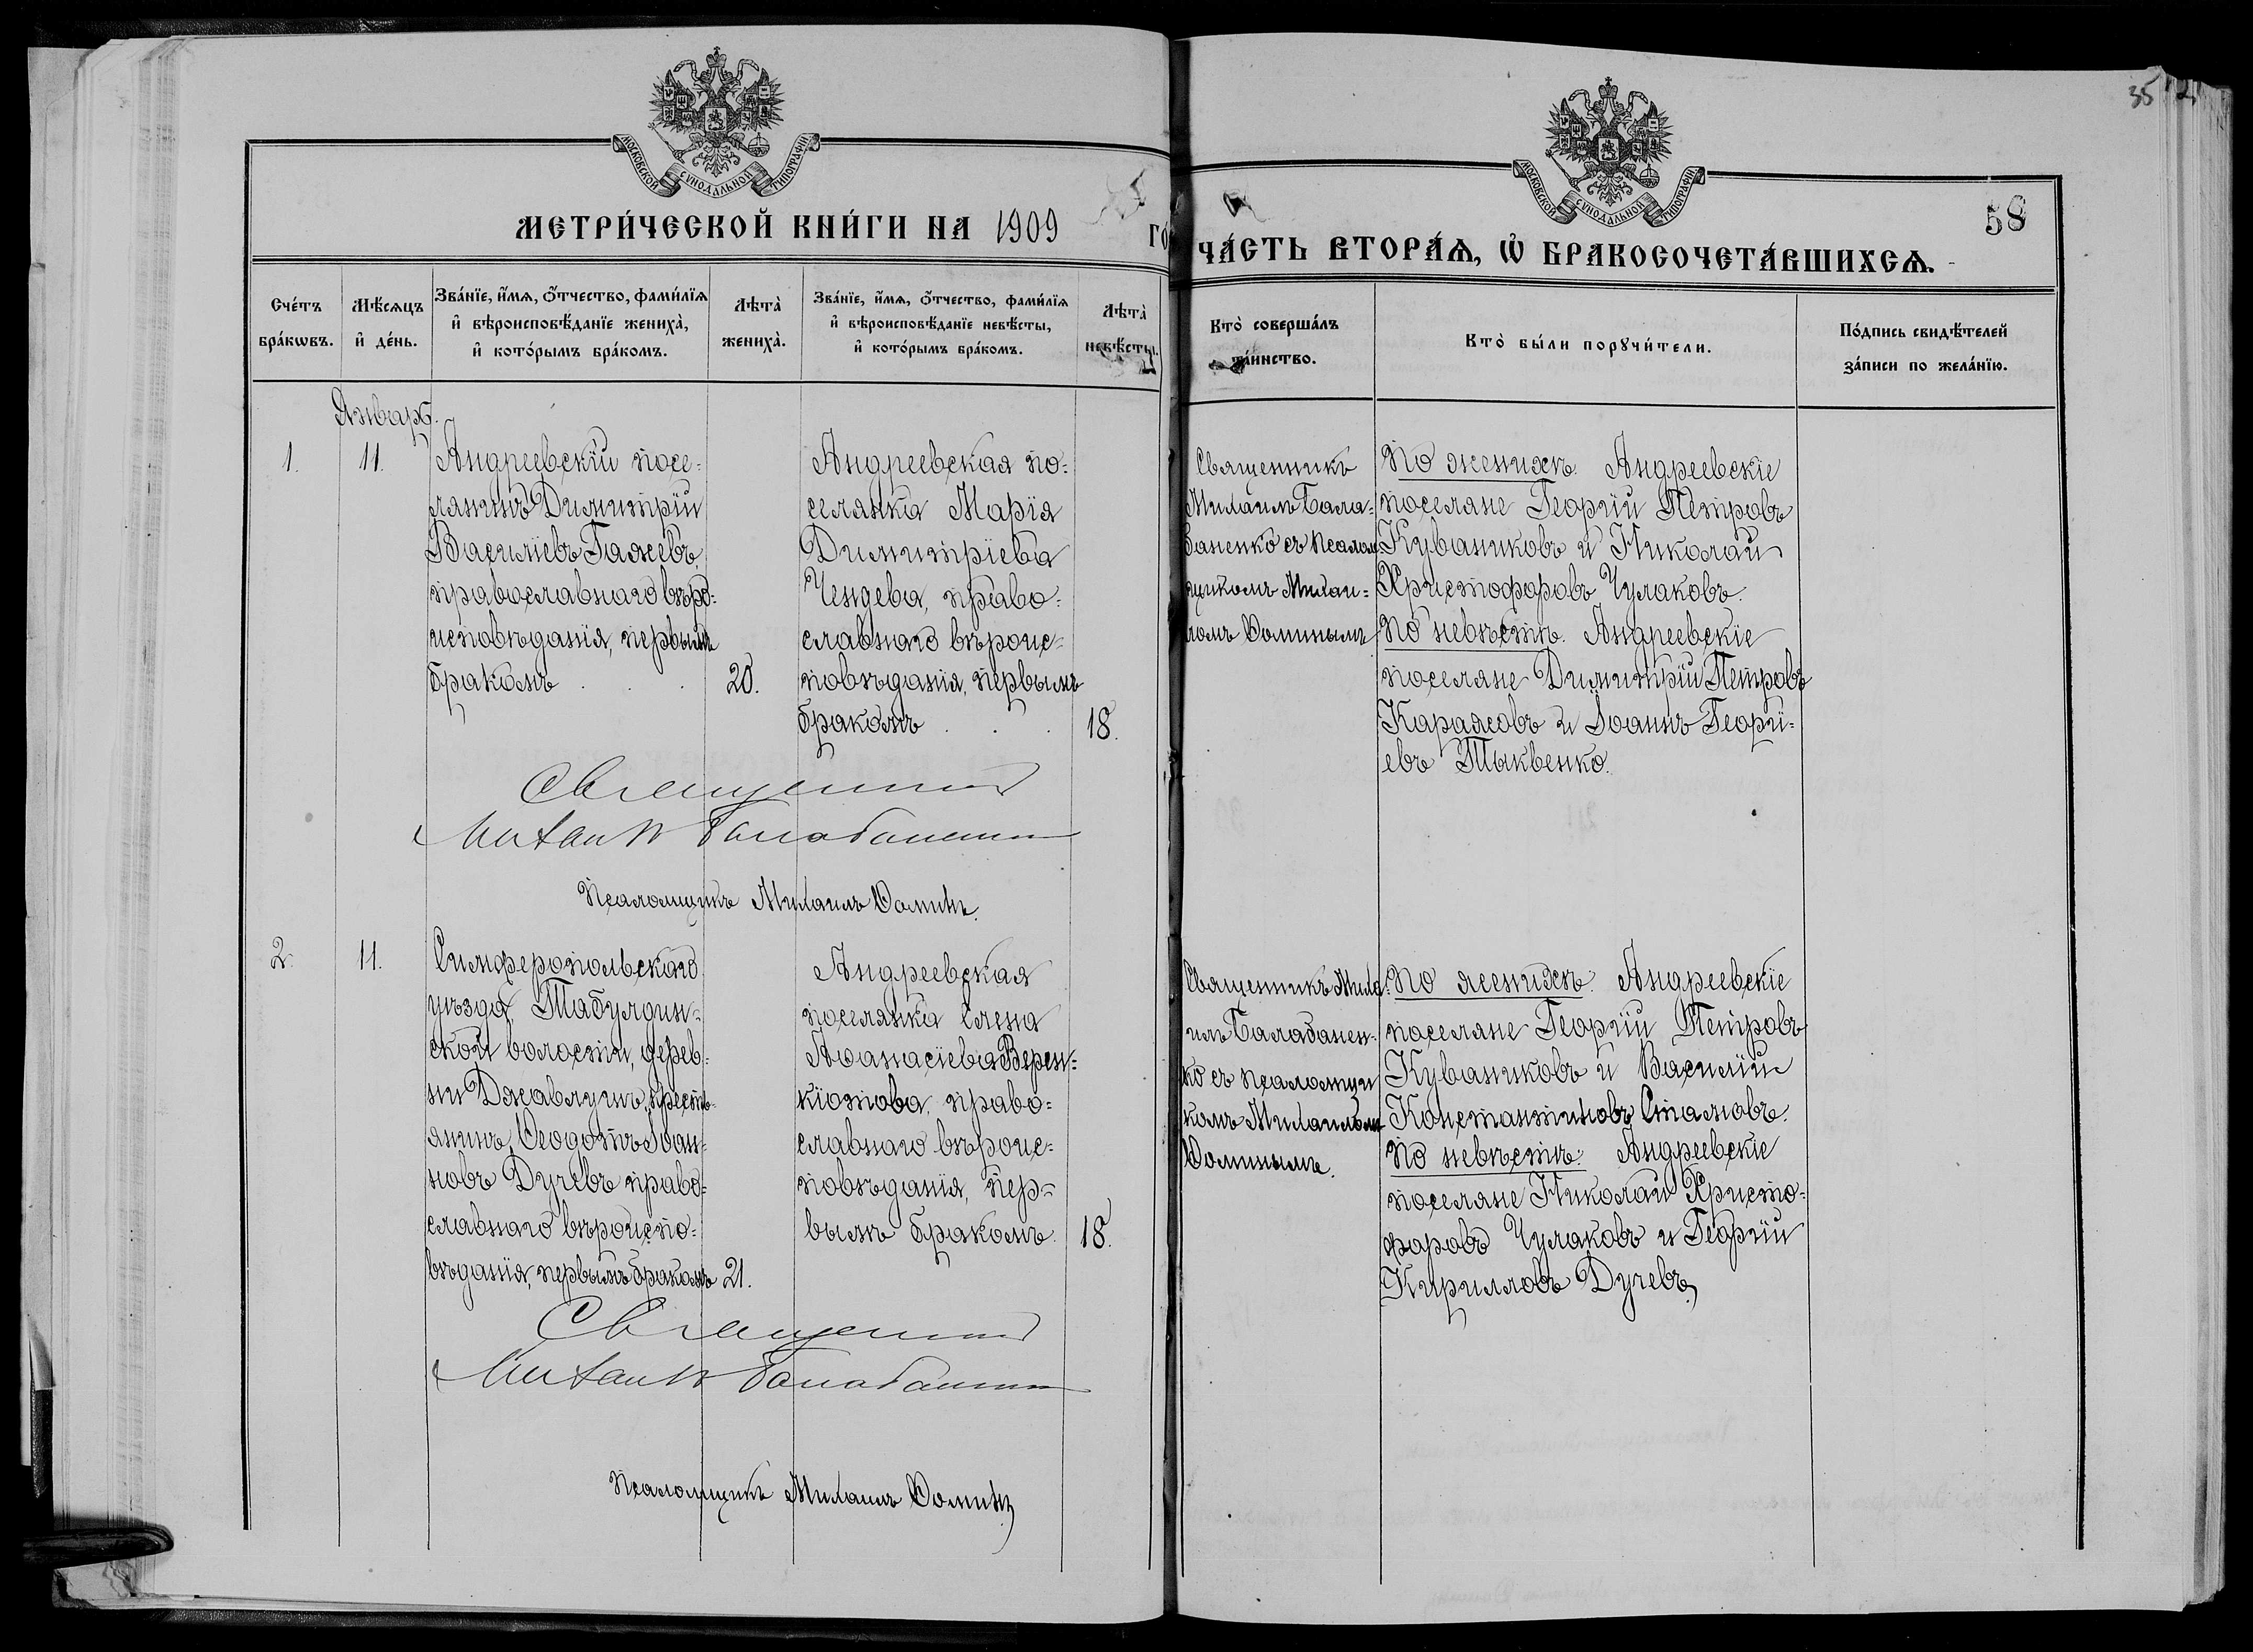 35
МОСКОВСКОЙ СѴНОДАЛЬНОЙ ТИПОГРАФІИ
МОСКОВСКОЙ СѴНОДАЛЬНОЙ ТИПОГРАФІИ
58
МЕТРИ́ЧЕСКОЙ КНИ́ГИ НА 1909 ГО
ЧА́СТЬ ВТОРА́Ѧ, Ѽ БРАКОСОЧЕТА́ВШИХСѦ.
Сче́тъ
бра́кѡвъ.
Мѣ́сѧцъ
и҆ де́нь.
Зва́нїе, и҆́мѧ, ѻ҆́тчество, фами́лїѧ
и҆ вѣроисповѣ́данїе жениха̀,
и҆ кото́рымъ бра́комъ.
Лѣта̀
жениха̀.
Зва́нїе, и҆́мѧ, ѻ҆́тчество, фами́лїѧ
и҆ вѣроисповѣ́данїе невѣ́сты,
и҆ кото́рымъ бра́комъ.
Лѣта̀
невѣ́сты.
Кто̀ соверша́лъ
та́инство.
Кто̀ бы́ли порꙋчи́тели.
По́дпись свидѣ́телей
за́писи по жела́нїю.
Январь.
1.
11.
Андреевскій посе-
лянинъ Димитрій
Василіевъ Гажевъ,
православнаго вѣро-
исповѣданія, первымъ
бракомъ . . .
20.
Андреевская по-
селянка Марія
Димитріева
Чендева, право-
славнаго вѣроис-
повѣданія, первымъ
бракомъ . . .
18.
Священникъ
Михаилъ Бала-
баненко съ псалом
щикомъ Михаи-
ломъ Ѳоминымъ
По женихѣ: Андреевскіе
поселяне Георгій Петровъ
Куванжиковъ и Николай
Христофоровъ Чулаковъ.
По невѣстѣ: Андреевскіе
поселяне Димитрій Петровъ
Каражовъ и Іоаннъ Георгі-
евъ Тыквенко.
Священникъ
Михаилъ Балабаненко
Псаломщикъ Михаилъ Ѳоминъ.
2.
11.
Симферопольскаго
уѣзда, Табулдин-
ской волости, дерев-
ни Джавлушъ, кресть-
янинъ, Ѳеодотъ Іоан-
новъ Дучевъ право-
славнаго вѣроиспо-
вѣданія, первымъ бракомъ
21.
Андреевская
поселянка Елена
Аѳанасіева Верен-
кіотова, право-
славнаго вѣроис-
повѣданія, пер-
вымъ бракомъ.
18.
Священникъ Миха-
илъ Балабанен-
ко съ псаломщи
комъ Михаиломъ
Ѳоминымъ.
По женихѣ: Андреевскіе
поселяне Георгій Петровъ
Куванжиковъ и Василій
Константиновъ Стамовъ.
По невѣстѣ: Андреевскіе
поселяне Николай Христо-
форовъ Чулаковъ и Георгій
Кирилловъ Дучевъ
Священникъ
Михаилъ Балабаненко
Псаломщикъ Михаилъ Ѳоминъ